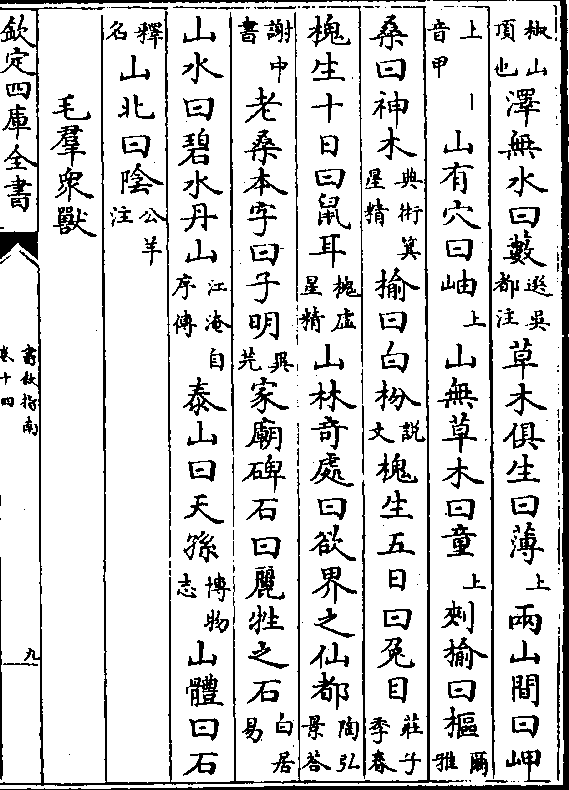 椒山頂也澤無水曰藪選吳都注草木俱生曰薄上兩山間曰岬
上音甲｜山有穴曰岫上山無草木曰童上刺榆曰樞爾雅
桑曰神木典術箕星精榆曰白枌説文槐生五日曰兔目莊子季春
槐生十日曰鼠耳槐虛星精山林奇處曰欲界之仙都陶弘景答
謝中書老桑本字曰子明異苑家廟碑石曰麗牲之石白居易
山水曰碧水丹山江淹自序傳泰山曰天孫博物志山體曰石
釋名山北曰陰公羊注
毛羣衆獸
欽定四庫全書
書敘指南
卷十四
九